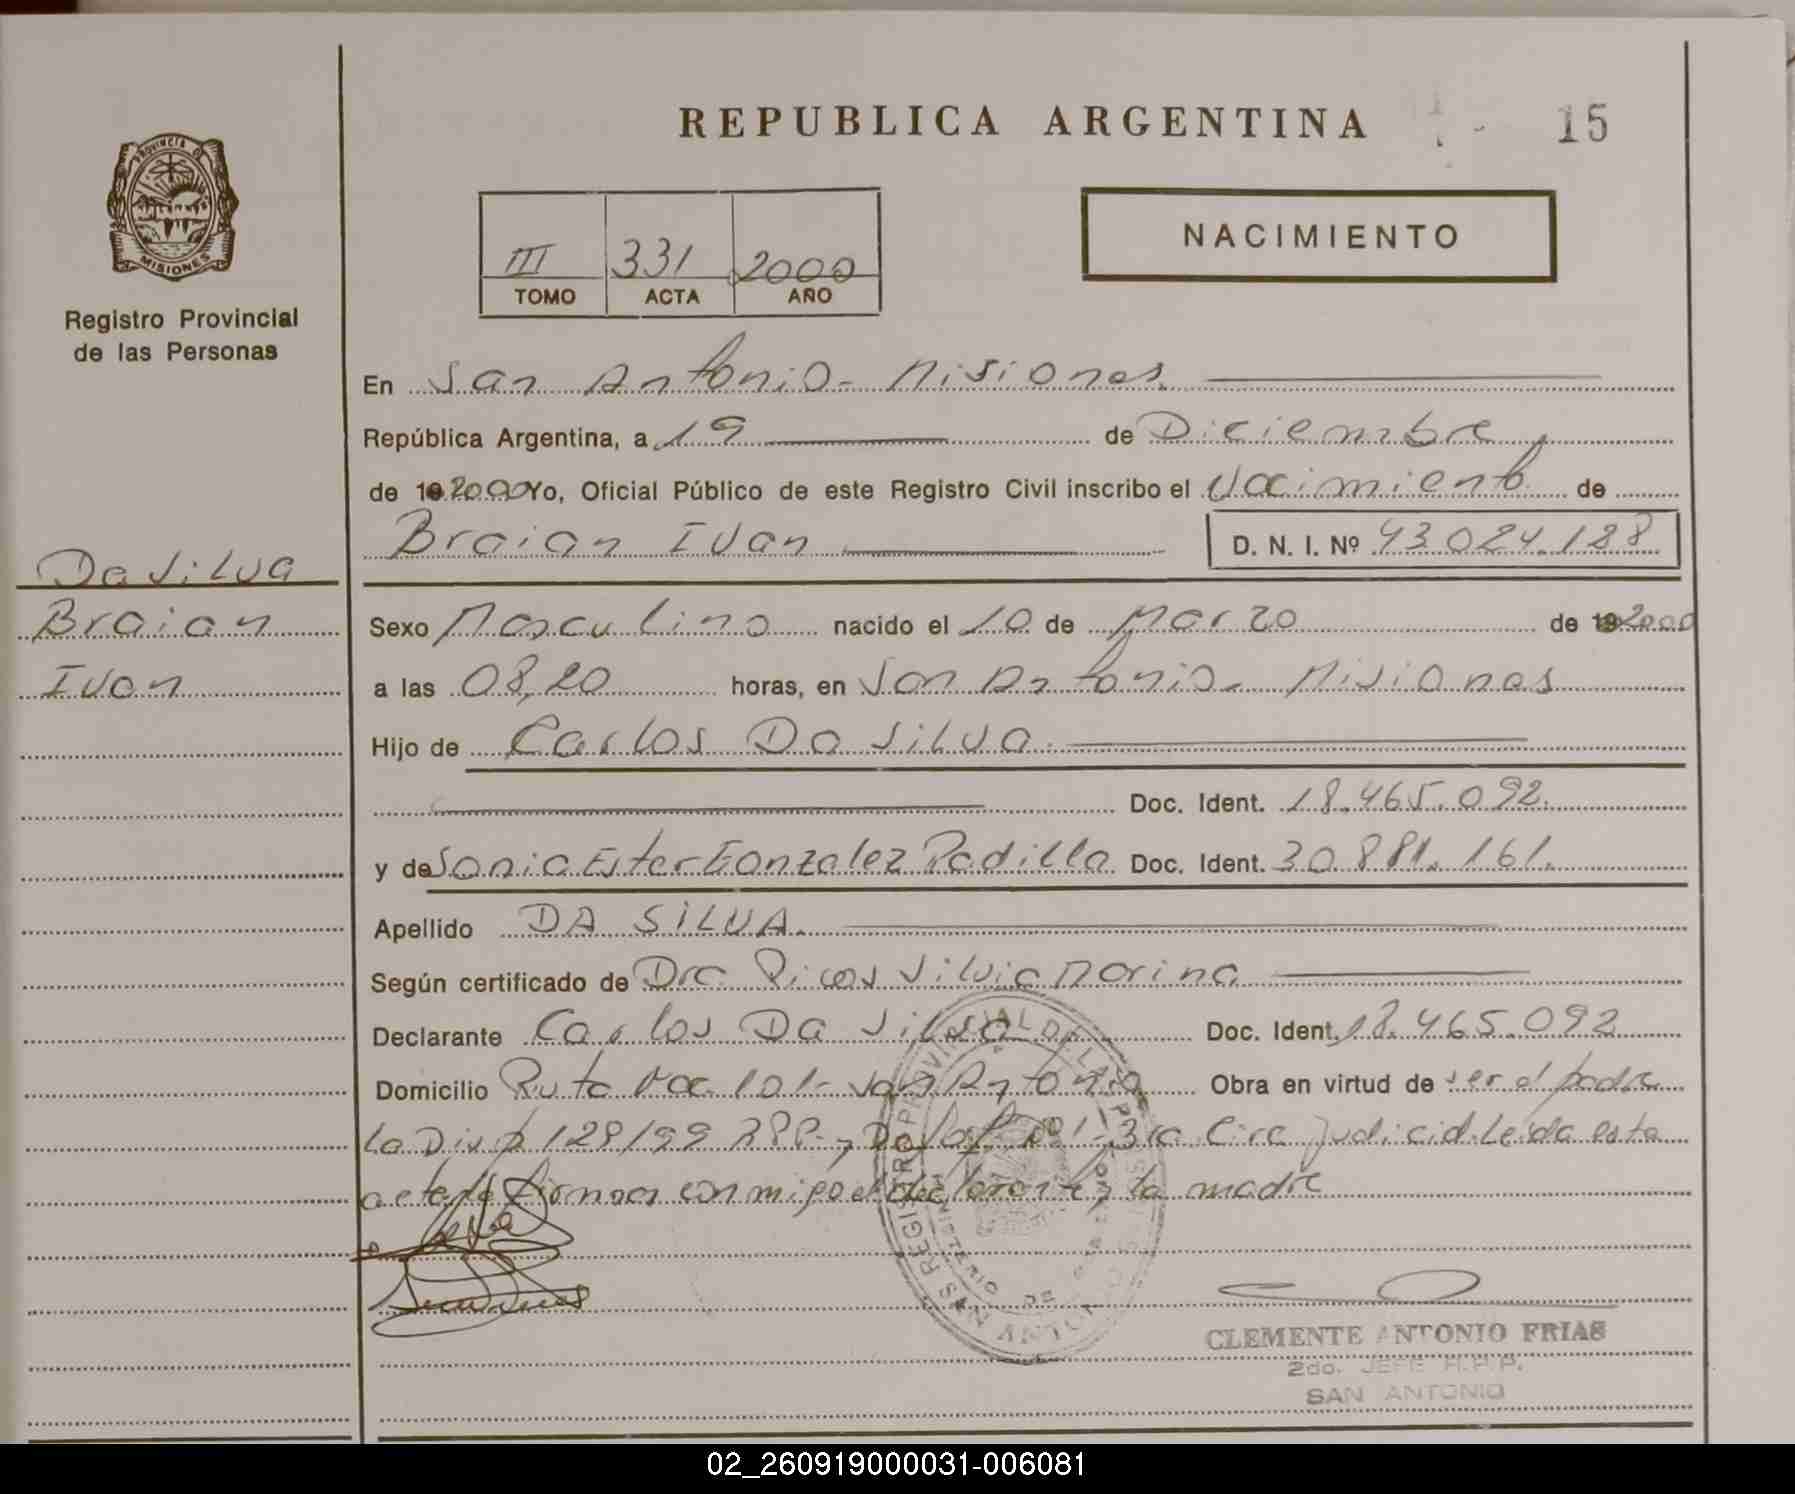 REPUBLICA ARGENTINA
15
PROVINCIA DE
MISIONES
Registro Provincial
de las Personas
III 331 2000
TOMO ACTA AÑO
NACIMIENTO
En San Antonio - Misiones
República Argentina, a 19 de Diciembre
de 19 2000 Yo, Oficial Público de este Registro Civil inscribo el Nacimiento de
Braian Ivan D. N. I. Nº 43.024.128
Da Silva
Braian
Ivan
Sexo Masculino nacido el 10 de Marzo de 19 2000
a las 08,20 horas, en San Antonio - Misiones
Hijo de Carlos Da Silva
Doc. Ident. 18.465.092.
y de Sonia Ester Gonzalez Padilla Doc. Ident. 30.881.161.
Apellido DA SILVA.
Según certificado de Dra. Picos Silvia Marina
Declarante Carlos Da Silva Doc. Ident. 18.465.092
Domicilio Ruta Nac 101 - San Antonio Obra en virtud de ser el padre
La Disp 129/99 RPP.- 3ra Circ Judicial. Leida esta
acta la firman conmigo el declarante y la madre
CLEMENTE ANTONIO FRIAS
2do. JEFE R.P.P.
SAN ANTONIO
02_260919000031-006081